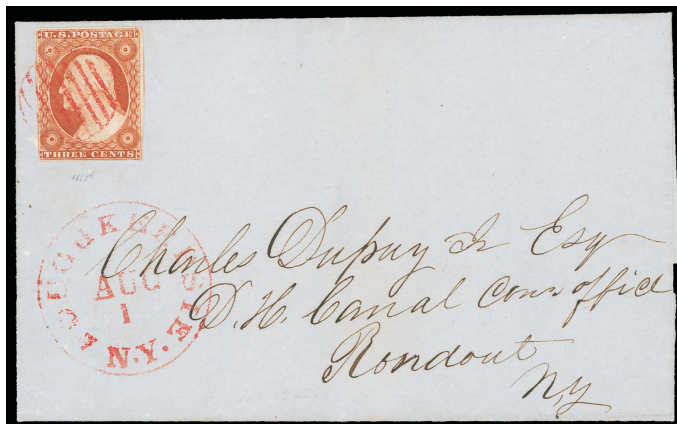 U.S. POSTAGE
THREE CENTS
POUGHKEEPSIE
AUG
1
N.Y.
Charles Dupuy Jr Esq
D. H. Canal Co office
Rondout
NY